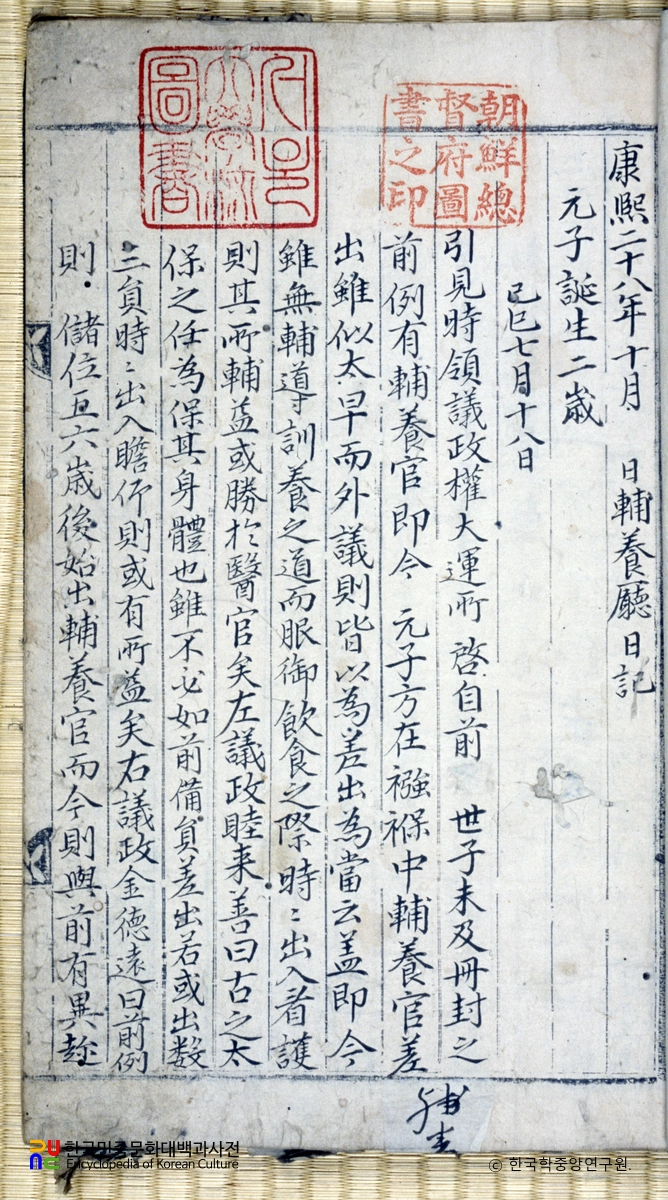 康熙二十八年十月 日輔養廳日記
元子誕生二歲
己巳七月十八日
引見時領議政權大運所 啓自前 世子未及冊封之
前例有輔養官即今 元子方在襁褓中輔養官差
出雖似太早而外議則皆以為差出為當云盖即今
雖無輔導訓養之道而服御飲食之際時〻出入看護
則其所輔益或勝於醫官矣左議政睦来善曰古之太
保之任為保其身體也雖不必如前備負差出若或出数
三負時〻出入瞻仰則或有所益矣右議政金德遠曰前例
則 儲位五六歲後始出輔養官而今則與前有異趂
朝鮮總
督府圖
書之印
圖書
한국민족문화대백과사전
Encyclopedia of Korean Culture
ⓒ 한국학중앙연구원.